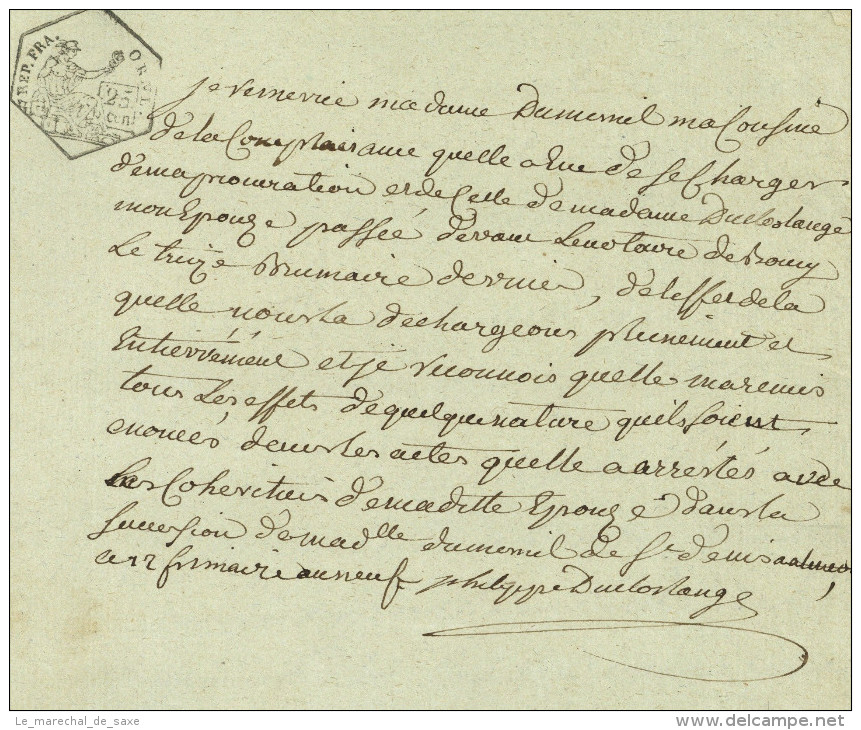 REP. FRA.
je remercie madame Dumesnil ma Cousine
de la Complaisance quelle a Eue de se Charger
de ma procuration et de Celle de madame Ducloslange
mon Epouze passée devant Le notaire de
Le treize Brumaire dernier, de l'effet de la
quelle nous la dechargeons pleinement et
Entierrement et je reconnois quelle ma remis
tous Les effets de quelque nature quils soient
enoncés dans les actes quelle a arrestés avec
Les Coheritiers de maditte Epouze dans la
succession de madlle dumesnil de St denis
ce 12 frimaire an neuf philippe Ducloslange
Le_marechal_de_saxe